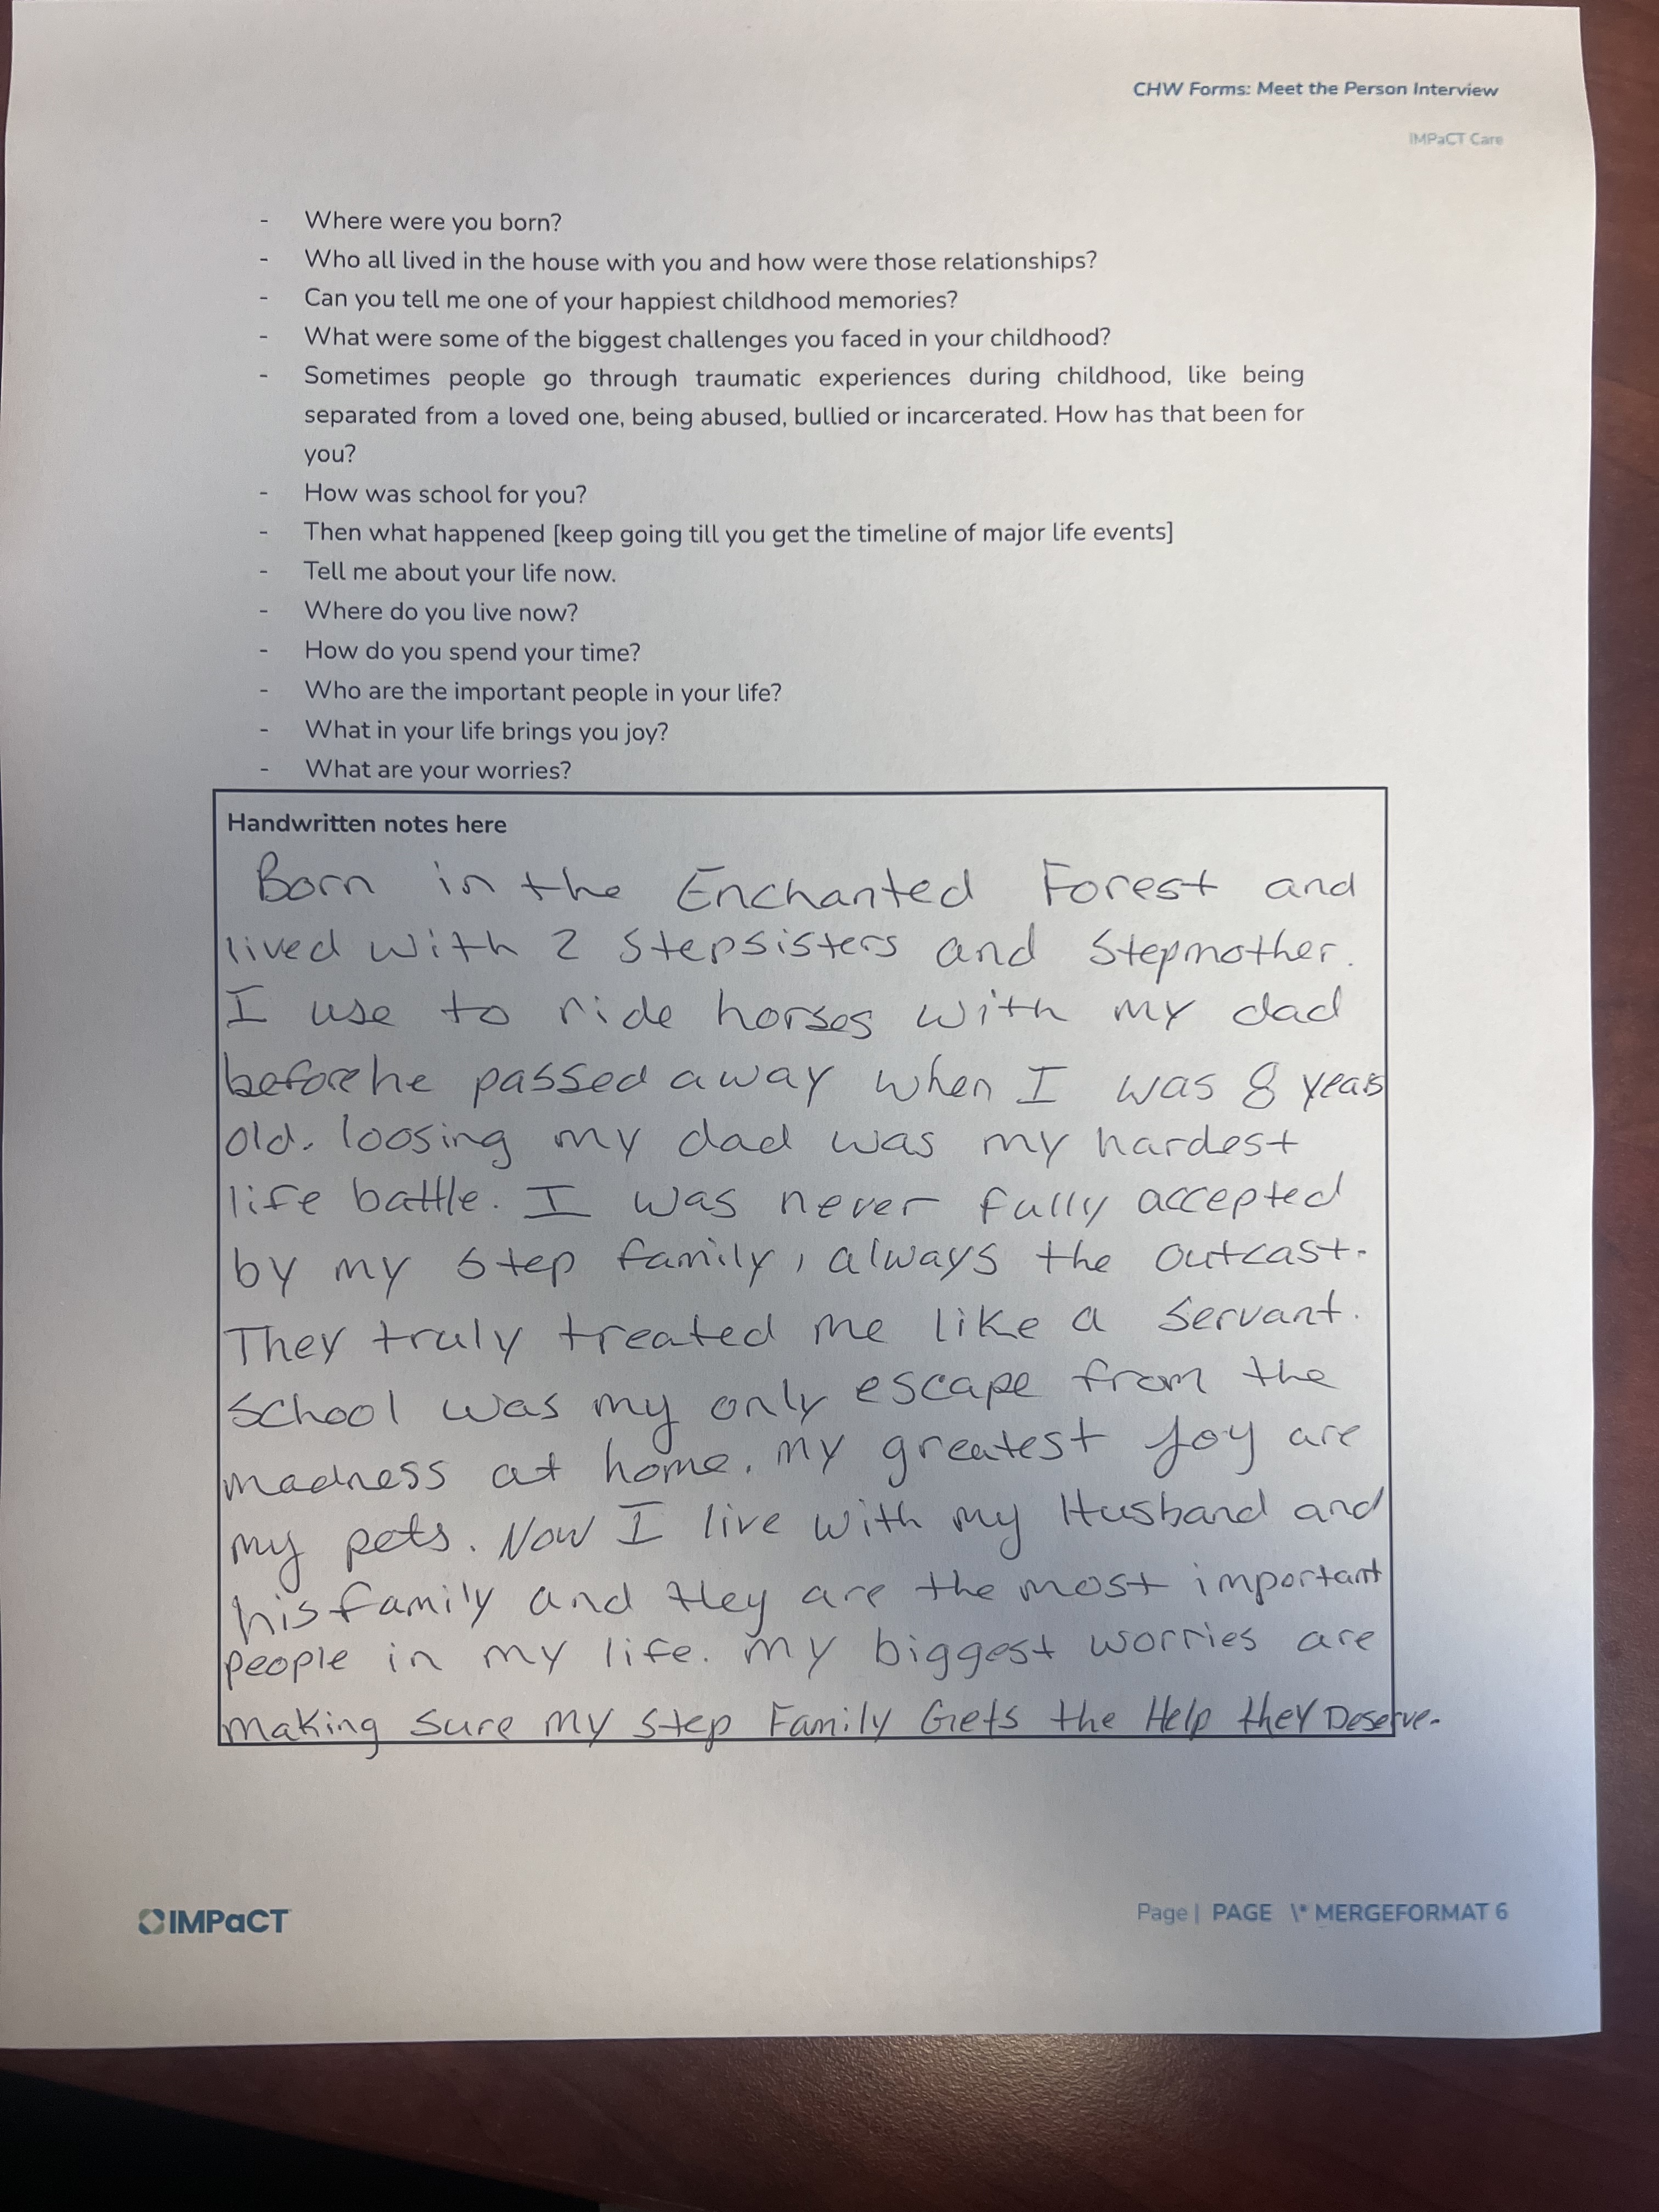 CHW Forms: Meet the Person Interview
IMPaCT Care
- Where were you born?
- Who all lived in the house with you and how were those relationships?
- Can you tell me one of your happiest childhood memories?
- What were some of the biggest challenges you faced in your childhood?
- Sometimes people go through traumatic experiences during childhood, like being
separated from a loved one, being abused, bullied or incarcerated. How has that been for
you?
- How was school for you?
- Then what happened [keep going till you get the timeline of major life events]
- Tell me about your life now.
- Where do you live now?
- How do you spend your time?
- Who are the important people in your life?
- What in your life brings you joy?
- What are your worries?
Handwritten notes here
Born in the Enchanted Forest and
lived with 2 stepsisters and stepmother.
I use to ride horses with my dad
before he passed away when I was 8 years
old. loosing my dad was my hardest
life battle. I was never fully accepted
by my step family, always the outcast.
They truly treated me like a servant.
School was my only escape from the
madness at home. my greatest joy are
my pets. Now I live with my Husband and
his family and they are the most important
people in my life. my biggest worries are
making sure my step Family Gets the Help they Deserve.
IMPaCT
Page | PAGE \* MERGEFORMAT 6